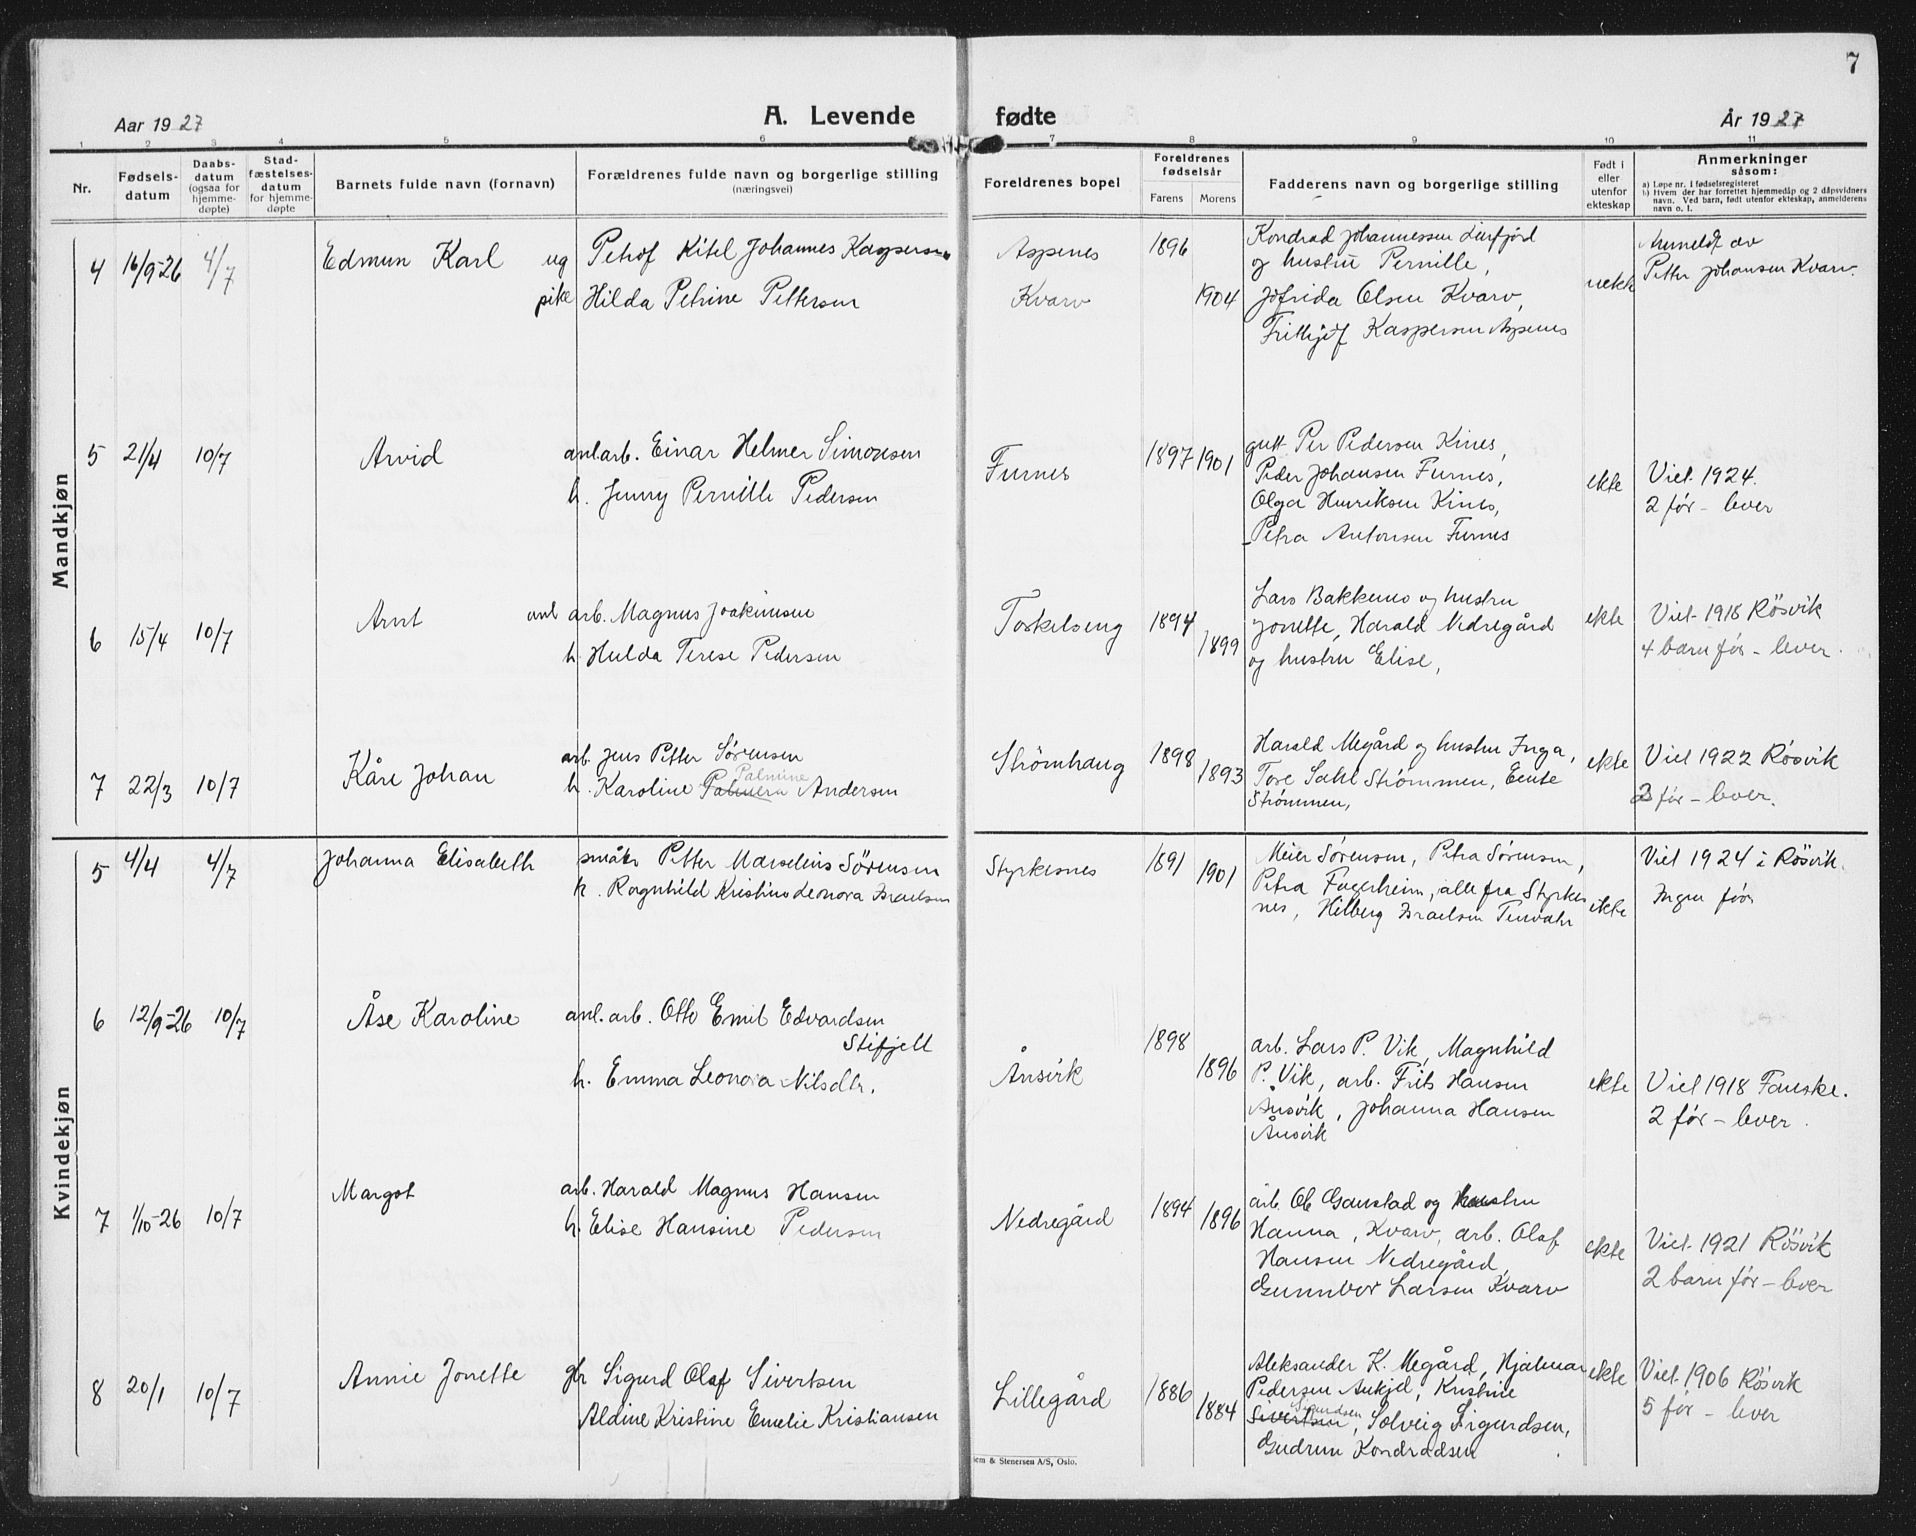 7
Aar 1927
A. Levende
fødte
År 1927
1 2 3 4 5 6 7 8 9 10 11
Nr.
Fødsels-
datum
Daabs-
datum
(ogsaa for
hjemme-
døpte)
Stad-
fæstelses-
datum
for hjemme-
døpte
Barnets fulde navn (fornavn)
Forældrenes fulde navn og borgerlige stilling
(næringsvei)
Foreldrenes bopel
Foreldrenes
fødselsår
Farens Morens
Fadderens navn og borgerlige stilling
Født i
eller
utenfor
ekteskap
Anmerkninger
såsom:
a) Løpe nr. i fødselsregisteret
b) Hvem der har forrettet hjemmedåp og 2 dåpsvidners
navn. Ved barn, født utenfor ekteskap, anmelderens
navn o. l.
Mandkjøn
4 16/9-26 4/7
Edmun Karl
ug Petrof Kitel Johannes Kaspersen
pike Hilda Petrine Pettersen
Aspenes
Kvarv
1896
1904
Kondrad Johannessen Leirfjord
og hustru Pernille,
Jofrida Olsen Kvarv,
Frithjof Kaspersen Aspenes
uekte
Anmeldt av
Petter Johansen Kvarv.
5 21/4 10/7
Arvid
anl.arb. Einar Helmer Simonsen
h. Jenny Pernille Pedersen
Furnes
1897 1901
gutt Per Pedersen Kines,
Peder Johansen Furnes,
Olga Henriksen Kines,
Petra Antonsen Furnes
ekte
Viet 1924.
2 før - lever
6 15/4 10/7
Arnt
anl arb. Magnus Joakimsen
h. Hulda Terese Pedersen
Torkelseng
1894
1899
Lars Bakkemo og hustru
Jonette, Harald Nedregård
og hustru Elise,
ekte
Viet 1918 Røsvik
4 barn før - lever.
7 22/3 10/7
Kåre Johan
arb. Jens Petter Sørensen
Palmine
h. Karoline Palmera Andersen
Strømhaug
1898
1893
Harald Megård og hustru Inga,
Tore Sakl Strømmen, Bente
Strømmen,
ekte
Viet 1922 Røsvik
3 før - lever.
Kvindekjøn
5 4/4 4/7
Johanna Elisabeth
småbr Petter Marselius Sørensen
h. Ragnhild Kristine Leonora Israelsen
Styrkesnes
1891
1901
Meier Sørensen, Petra Sørensen,
Petra Fagerheim, alle fra Styrkes
nes, Hilberg Israelsen Tenvahr
ekte
Viet 1924 i Røsvik.
Ingen før
6 12/9-26 10/7
Åse Karoline
anl. arb. Otto Emil Edvardsen
Stifjell
h. Emma Leonora Nilsdtr.
Ånsvik
1898
1896
arb. Lars P. Vik, Magnhild
P. Vik, arb. Frits Hansen
Ånsvik, Johanna Hansen
Ånsvik
ekte
Viet 1918 Fauske.
2 før - lever.
7 1/10-26 10/7
Margot
arb. Harald Magnus Hansen
h. Elise Hansine Pedersen
Nedregård
1894 1896
arb. Ole Gaustad og hustru
Hanna, Kvarv, arb. Olaf
Hansen Nedregård,
Gunnbor Larsen Kvarv
ekte
Viet 1921 Røsvik
2 barn før - lever
8 20/1 10/7
Annie Jonette
gbr Sigurd Olaf Sivertsen
Aldine Kristine Emelie Kristiansen
Lillegård
1886
1884
Aleksander K. Megård, Hjalmar
Pedersen Aukjel, Kristine
Sigurdsen
Sivertsen, Solveig Sigurdsen,
Gudrun Kondradsen
ekte
Viet 1906 Røsvik
5 før - lever
em & Stenersen A/S, Oslo.